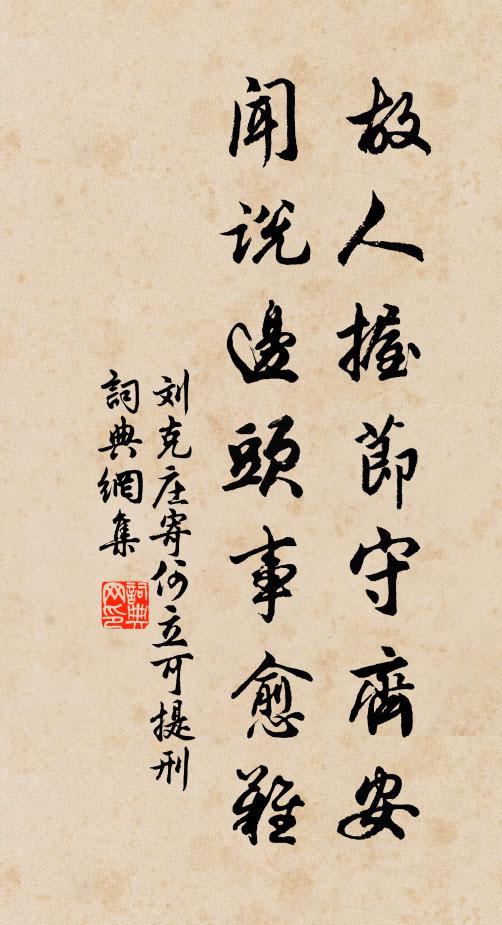 故人握節守齊安
闻说邊頭事愈難
刘克庄寄何立可提刑
詞典網集
詞典网印